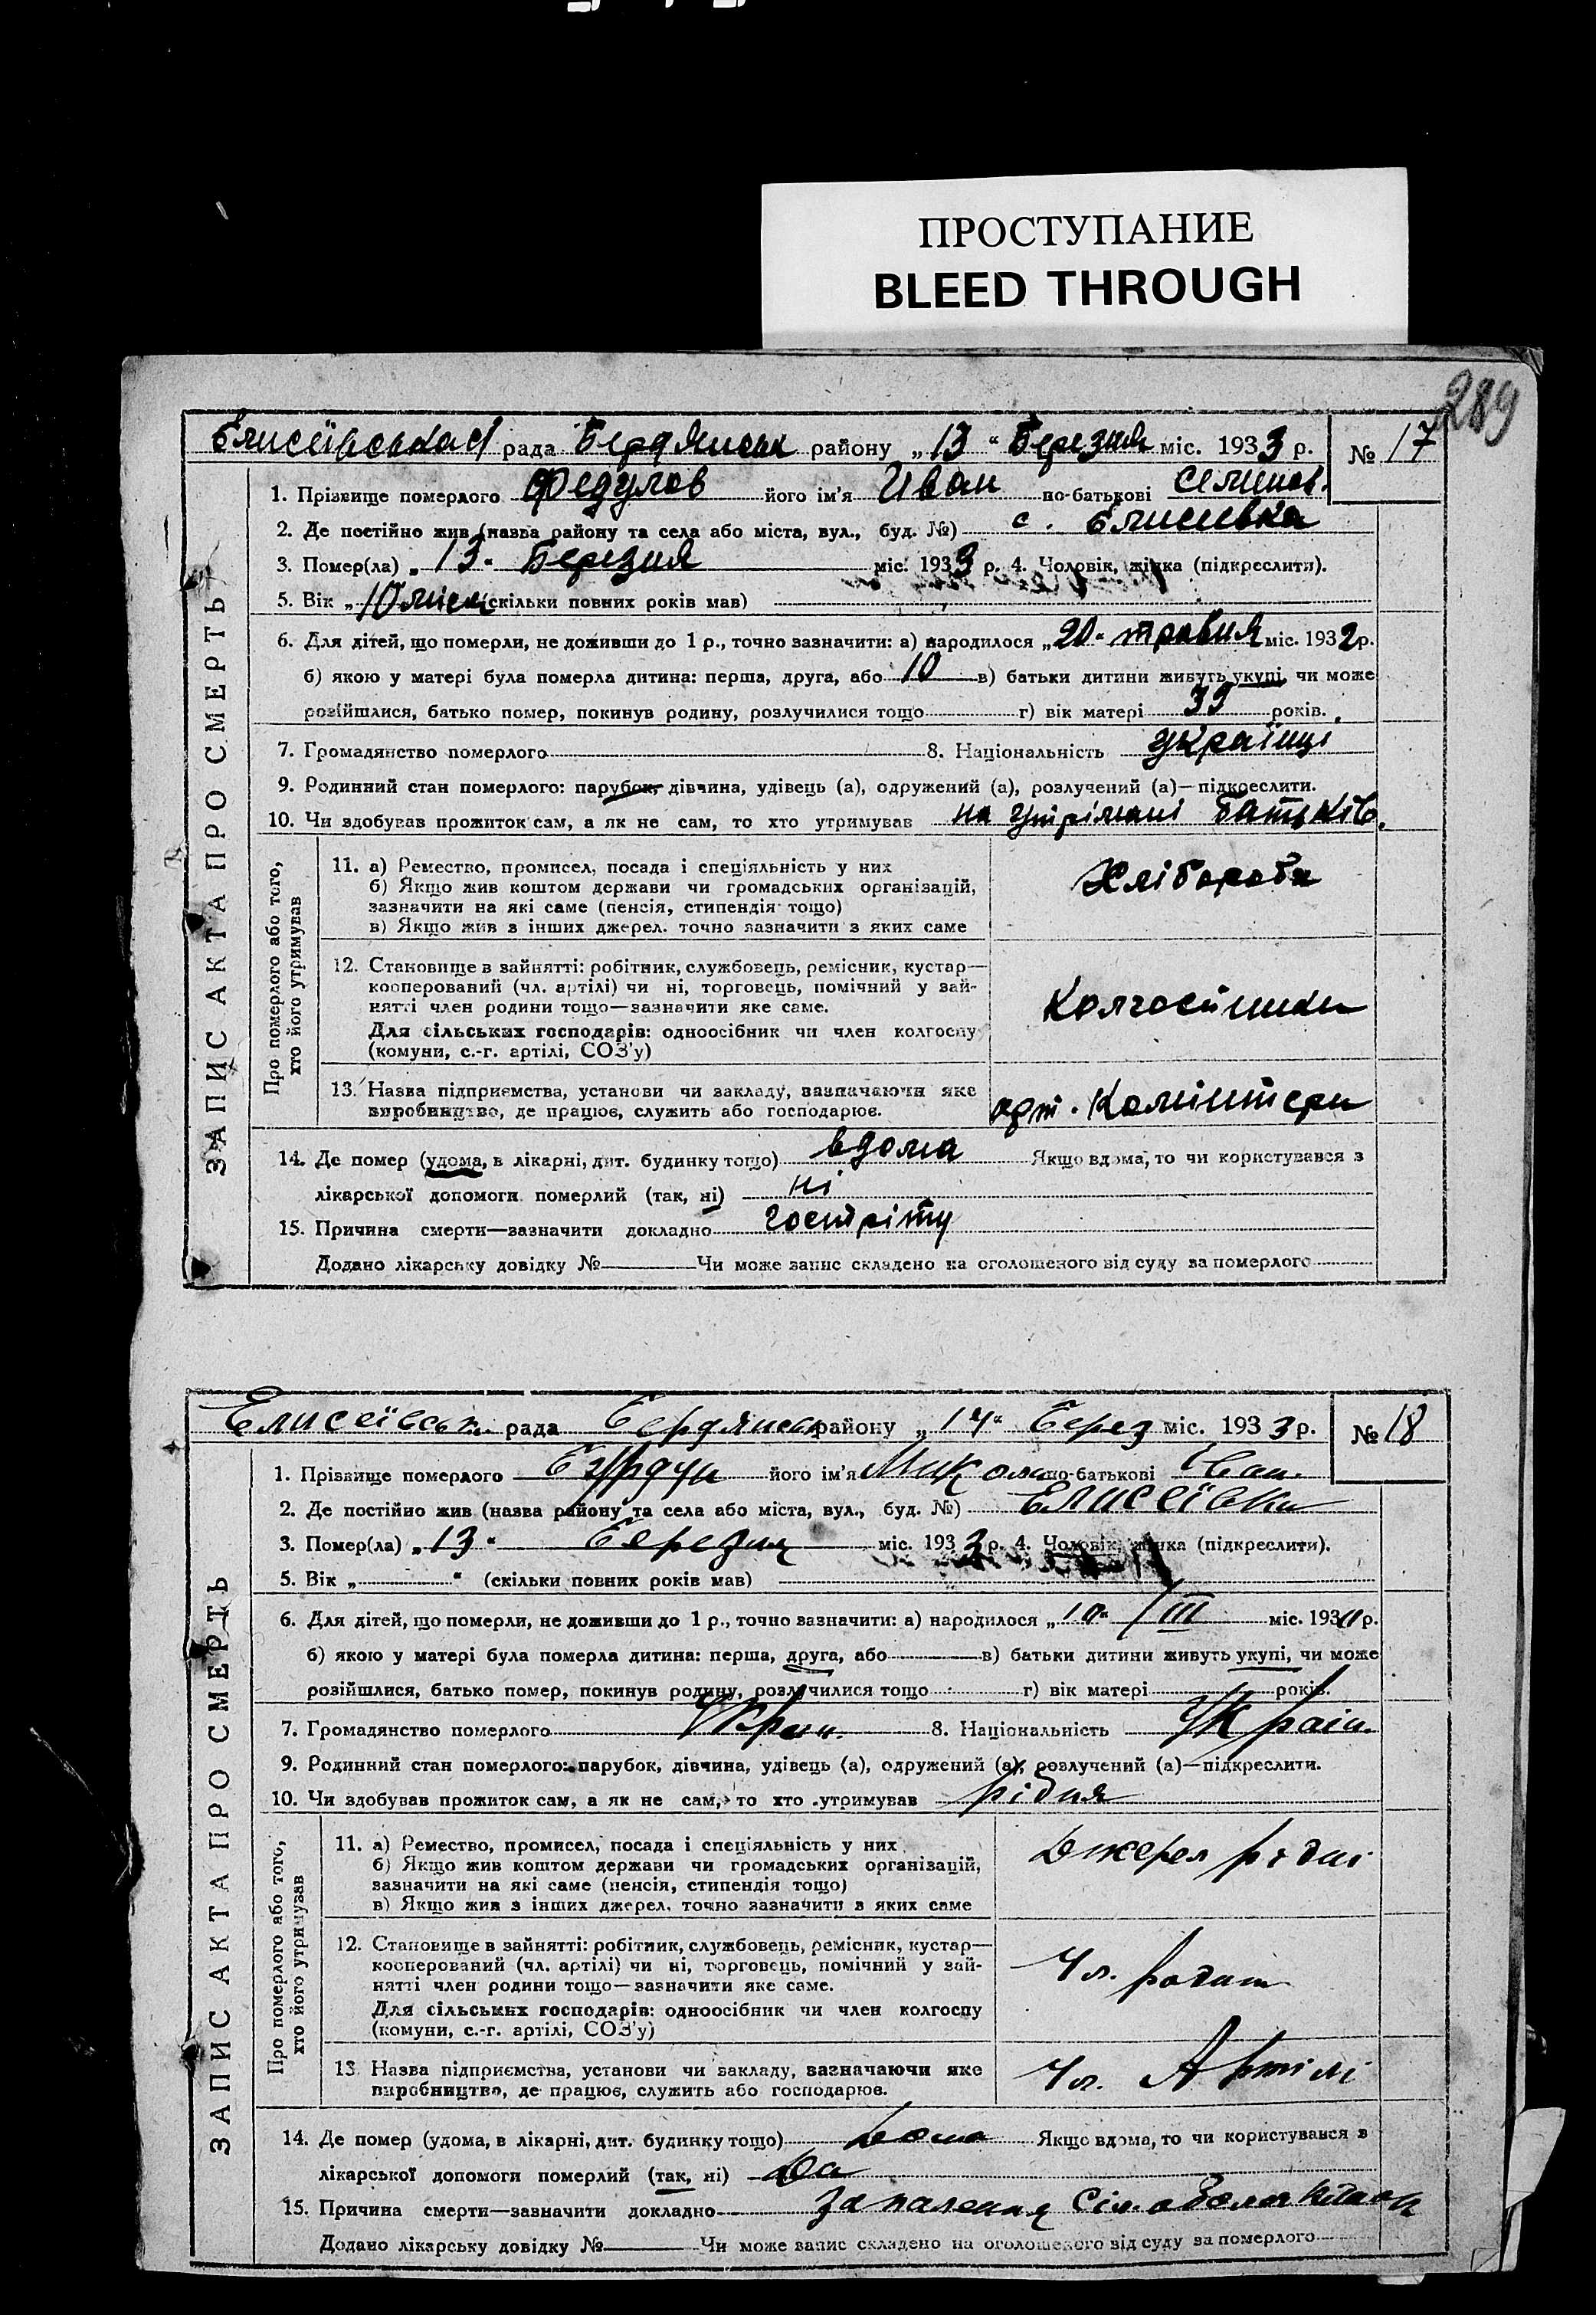 ПРОСТУПАНИЕ
BLEED THROUGH
289
Елисеївська рада Бердянськ району „13“ Березня міс. 1933 р. № 17
ЗАПИС АКТА ПРО СМЕРТЬ
1. Прізвище померлого Федулов його ім'я Иван по-батькові
2. Де постійно жив (назва району та села або міста, вул., буд. №) с. Елисеевка
3. Помер(ла) „13“ Березня міс. 1933 р. 4. Чоловік, жінка (підкреслити).
5. Вік „10 міся скільки повних років мав)
6. Для дітей, що померли, не доживши до 1 р., точно зазначити: а) народилося „20“ травня міс. 1932 р.
б) якою у матері була померла дитина: перша, друга, або 10 в) батьки дитини живуть укупі, чи може
розійшлися, батько помер, покинув родину, розлучилися тощо г) вік матері 39 років.
7. Громадянство померлого 8. Національність українці
9. Родинний стан померлого: парубок, дівчина, удівець (а), одружений (а), розлучений (а)—підкреслити.
10. Чи здобував прожиток сам, а як не сам, то хто утримував на утрімані батьків.
Про померлого або того, хто його утримував
11. а) Ремество, промисел, посада і спеціяльність у них
б) Якщо жив коштом держави чи громадських організацій,
зазначити на які саме (пенсія, стипендія тощо)
в) Якщо жив з інших джерел, точно зазначити з яких саме
Хлібороби
12. Становище в зайнятті: робітник, службовець, ремісник, кустар—
кооперований (чл. артілі) чи ні, торговець, помічний у зай-
нятті член родини тощо—зазначити яке саме.
Для сільських господарів: одноосібник чи член колгоспу
(комуни, с.-г. артілі, СОЗ'у)
Колгоспники
13. Назва підприємства, установи чи закладу, зазначаючи яке
виробництво, де працює, служить або господарює.
арт. Комінтерн
14. Де помер (удома, в лікарні, дит. будинку тощо) вдома Якщо вдома, то чи користувався з
лікарської допомоги померлий (так, ні) ні
15. Причина смерти—зазначити докладно гостріту
Додано лікарську довідку № Чи може запис складено на оголошеного від суду за померлого
Елисеївськ. рада Бердянськ району „14“ Берез міс. 1933 р. № 18
ЗАПИС АКТА ПРО СМЕРТЬ
1. Прізвище померлого його ім'я Микола по-батькові Іван.
2. Де постійно жив (назва району та села або міста, вул., буд. №) Елисеївка
3. Помер(ла) „13“ Березня міс. 1933 р. 4. Чоловік, жінка (підкреслити).
5. Вік „ “ (скільки повних років мав)
6. Для дітей, що померли, не доживши до 1 р., точно зазначити: а) народилося „10“ /III міс. 193 р.
б) якою у матері була померла дитина: перша, друга, або в) батьки дитини живуть укупі, чи може
розійшлися, батько помер, покинув родину, розлучилися тощо г) вік матері років.
7. Громадянство померлого Украї. 8. Національність Україн.
9. Родинний стан померлого: парубок, дівчина, удівець (а), одружений (а), розлучений (а)—підкреслити.
10. Чи здобував прожиток сам, а як не сам, то хто утримував рідня
Про померлого або того, хто його утримував
11. а) Ремество, промисел, посада і спеціяльність у них
б) Якщо жив коштом держави чи громадських організацій,
зазначити на які саме (пенсія, стипендія тощо)
в) Якщо жив з інших джерел, точно зазначити з яких саме
Джерел рідні
12. Становище в зайнятті: робітник, службовець, ремісник, кустар—
кооперований (чл. артілі) чи ні, торговець, помічний у зай-
нятті член родини тощо—зазначити яке саме.
Для сільських господарів: одноосібник чи член колгоспу
(комуни, с.-г. артілі, СОЗ'у)
Чл. родини
13. Назва підприємства, установи чи закладу, зазначаючи яке
виробництво, де працює, служить або господарює.
Чл. Артілі
14. Де помер (удома, в лікарні, дит. будинку тощо) Дома Якщо вдома, то чи користувався з
лікарської допомоги померлий (так, ні) Да
15. Причина смерти—зазначити докладно Запалення
Додано лікарську довідку № Чи може запис складено на оголошеного від суду за померлого